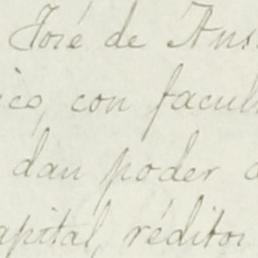 José de Ans
ico, con facul
dan poder
apital, réditos